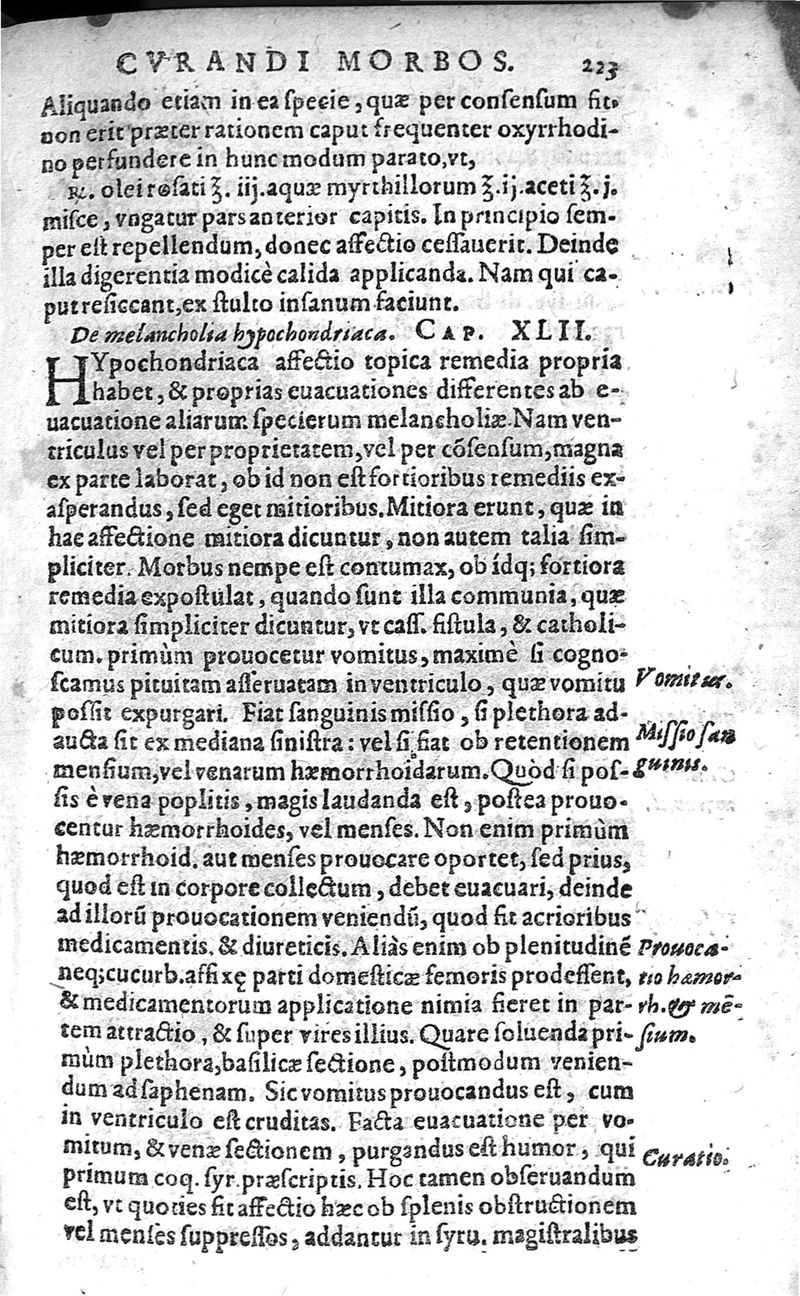 CVRANDI MORBOS. 223
Aliquando etiam in ea ſpecie, quæ per conſenſum fit.
non erit præter rationem caput frequenter oxyrrhodi-
no perfundere in hunc modum parato, vt,
℞. olei roſati ℥. iij. aquæ myrthillorum ℥. ij. aceti ℥. j.
miſce, vngatur pars anterior capitis. In principio ſem-
per eſt repellendum, donec affectio ceſſauerit. Deinde
illa digerentia modicè calida applicanda. Nam qui ca-
put reſiccant, ex ſtulto inſanum faciunt.
De melancholia hypochondriaca. CAP. XLII.
HYpochondriaca affectio topica remedia propria
habet, & proprias euacuationes differentes ab e-
uacuatione aliarum ſpecierum melancholiæ. Nam ven-
triculus vel per proprietatem, vel per cõſenſum, magna
ex parte laborat, ob id non eſt fortioribus remediis ex-
aſperandus, ſed eget mitioribus. Mitiora erunt, quæ in
hac affectione mitiora dicuntur, non autem talia ſim-
pliciter. Morbus nempe eſt contumax, ob ídq; fortiora
remedia expoſtulat, quando ſunt illa communia, quæ
mitiora ſimpliciter dicuntur, vt caſſ. fiſtula, & catholi-
cum. primùm prouocetur vomitus, maximè ſi cogno-
ſcamus pituitam aſſeruatam in ventriculo, quæ vomitu
Vomitus.
poſſit expurgari. Fiat ſanguinis miſſio, ſi plethora ad-
aucta ſit ex mediana ſiniſtra: vel ſi fiat ob retentionem
Miſſio ſan
menſium, vel venarum hæmorrhoidarum. Quòd ſi poſ-
guinis.
ſis è vena poplitis, magis laudanda eſt, poſtea prouo-
centur hæmorrhoides, vel menſes. Non enim primùm
hæmorrhoid. aut menſes prouocare oportet, ſed prius,
quod eſt in corpore collectum, debet euacuari, deinde
ad illorũ prouocationem veniendũ, quod fit acrioribus
medicamentis. & diureticis. Aliàs enim ob plenitudinẽ
Prouoca-
neq; cucurb. affixę parti domeſticæ femoris prodeſſent,
tio hæmor-
& medicamentorum applicatione nimia fieret in par-
rh. & mẽ-
tem attractio, & ſuper vires illius. Quare ſoluenda pri-
ſium.
mùm plethora, baſilicæ ſectione, poſtmodum venien-
dum ad ſaphenam. Sic vomitus prouocandus eſt, cum
in ventriculo eſt cruditas. Facta euacuatione per vo-
mitum, & venæ ſectionem, purgandus eſt humor, qui
Curatio.
primum coq. ſyr. præſcriptis. Hoc tamen obſeruandum
eſt, vt quoties fit affectio hæc ob ſplenis obſtructionem
vel menſes ſuppreſſos, addantur in ſyru. magiſtralibus